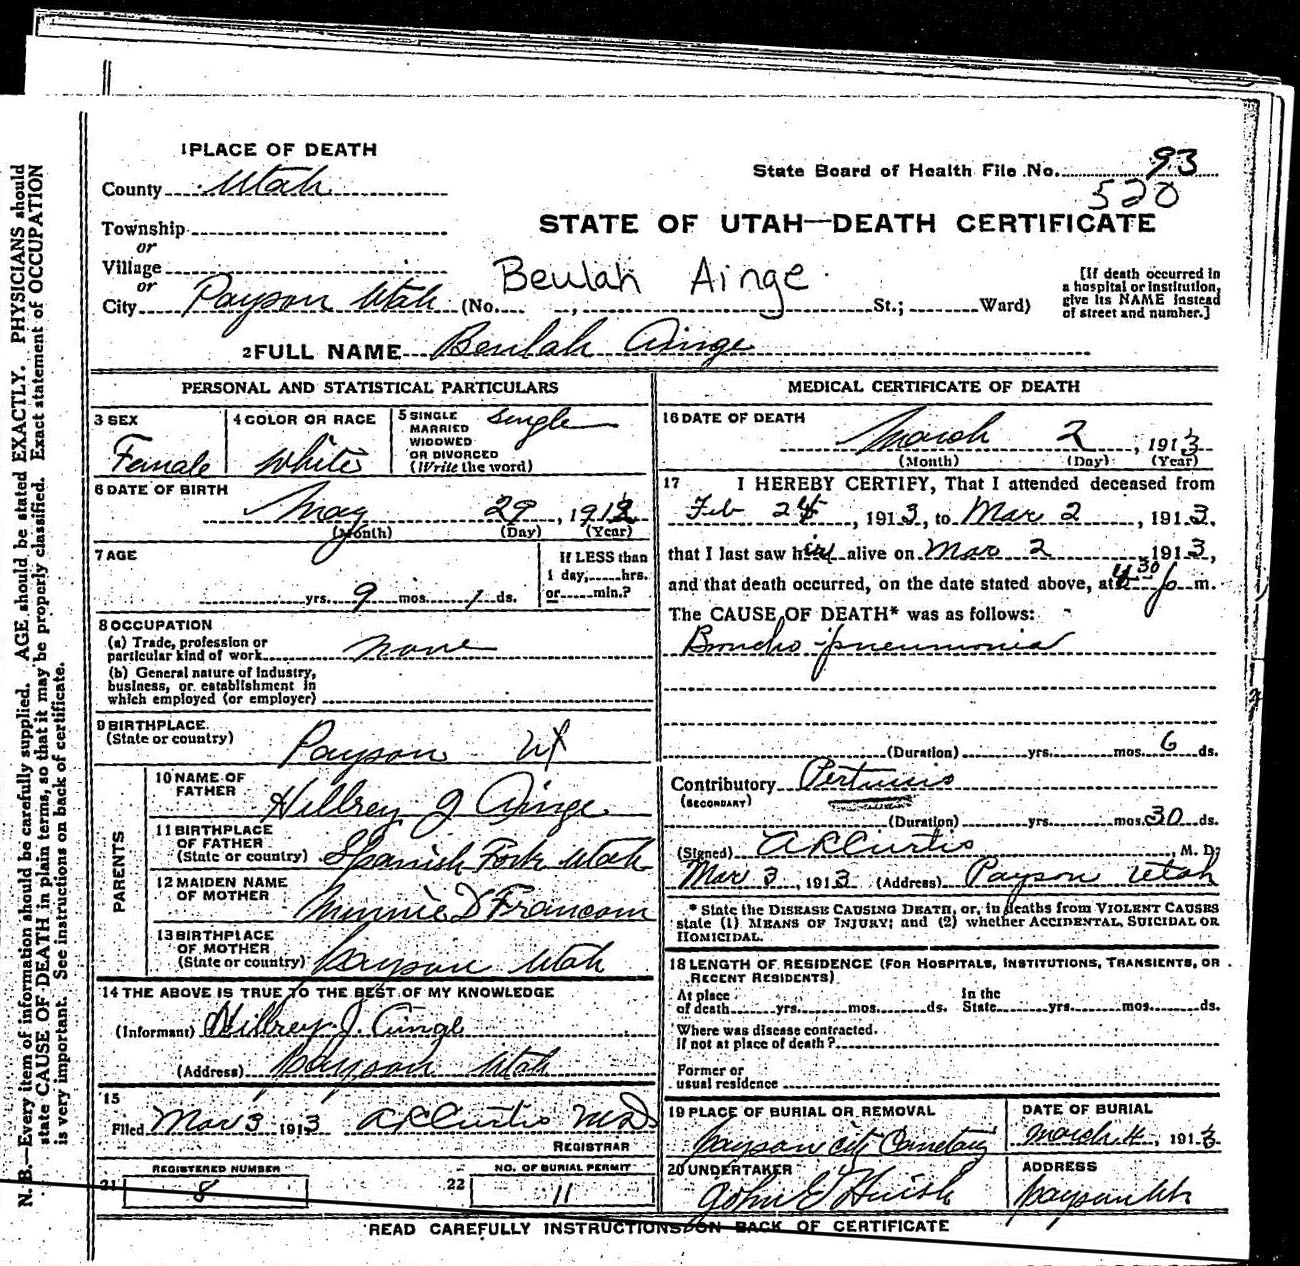 1 PLACE OF DEATH
County Utah
State Board of Health File No. 93
520
Township
or
Village
or
City Payson Utah (No. , St.; Ward)
STATE OF UTAH—DEATH CERTIFICATE
Beulah Ainge
[If death occurred in
a hospital or institution,
give its NAME instead
of street and number.]
2 FULL NAME Beulah Ainge
PERSONAL AND STATISTICAL PARTICULARS
3 SEX
Female
4 COLOR OR RACE
White
5 SINGLE
MARRIED
WIDOWED
OR DIVORCED
(Write the word)
Single
6 DATE OF BIRTH
May 29, 1912
(Month) (Day) (Year)
7 AGE
yrs. 9 mos. 1 ds.
If LESS than
1 day, hrs.
or min.?
8 OCCUPATION
(a) Trade, profession or
particular kind of work none
(b) General nature of industry,
business, or establishment in
which employed (or employer)
9 BIRTHPLACE
(State or country)
Payson Ut
PARENTS
10 NAME OF
FATHER
Hillrey J Ainge
11 BIRTHPLACE
OF FATHER
(State or country) Spanish Fork Utah
12 MAIDEN NAME
OF MOTHER
Minnie D Francom
13 BIRTHPLACE
OF MOTHER
(State or country) Payson Utah
14 THE ABOVE IS TRUE TO THE BEST OF MY KNOWLEDGE
(Informant) Hillrey J. Ainge
(Address) Payson Utah
15
Filed Mar 3 1913 A R Curtis M D
REGISTRAR
REGISTERED NUMBER
21 8
NO. OF BURIAL PERMIT
22 11
MEDICAL CERTIFICATE OF DEATH
16 DATE OF DEATH
March 2, 1913
(Month) (Day) (Year)
17 I HEREBY CERTIFY, That I attended deceased from
Feb 24, 1913, to Mar 2, 1913,
that I last saw her alive on Mar 2 1913,
and that death occurred, on the date stated above, at 4 30 p m.
The CAUSE OF DEATH* was as follows:
Broncho pneumonia
(Duration) yrs. mos. 6 ds.
Contributory Pertussis
(SECONDARY)
(Duration) yrs. mos. 30 ds.
(Signed) A R Curtis, M. D.
Mar 3, 1913 (Address) Payson Utah
* State the DISEASE CAUSING DEATH, or, in deaths from VIOLENT CAUSES
state (1) MEANS OF INJURY; and (2) whether ACCIDENTAL, SUICIDAL OR
HOMICIDAL.
18 LENGTH OF RESIDENCE (FOR HOSPITALS, INSTITUTIONS, TRANSIENTS, OR
RECENT RESIDENTS)
At place
of death yrs. mos. ds.
In the
State yrs. mos. ds.
Where was disease contracted.
if not at place of death?
Former or
usual residence
19 PLACE OF BURIAL OR REMOVAL
Payson City Cemetary
DATE OF BURIAL
March 4, 1913
20 UNDERTAKER
John E Huish
ADDRESS
Payson Ut
READ CAREFULLY INSTRUCTIONS ON BACK OF CERTIFICATE
N. B.—Every item of information should be carefully supplied. AGE should be stated EXACTLY. PHYSICIANS should
state CAUSE OF DEATH in plain terms, so that it may be properly classified. Exact statement of OCCUPATION
is very important. See instructions on back of certificate.